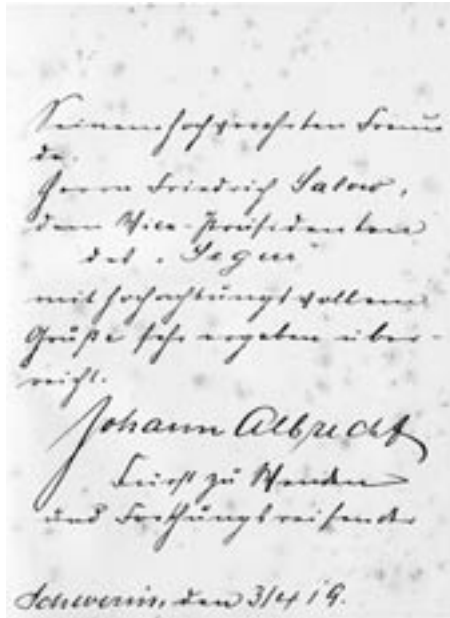 Seinem hochverehrten Freun
de.
Herrn Friedrich Salow,
dem Vice-Präsidenten
des „Segur“
mit hochachtungsvollem
Gruße sehr ergeben über-
reicht.
Johann Albrecht
Fürst zu Wenden
und Forschungsreisender
Schwerin, den 3/4 19.